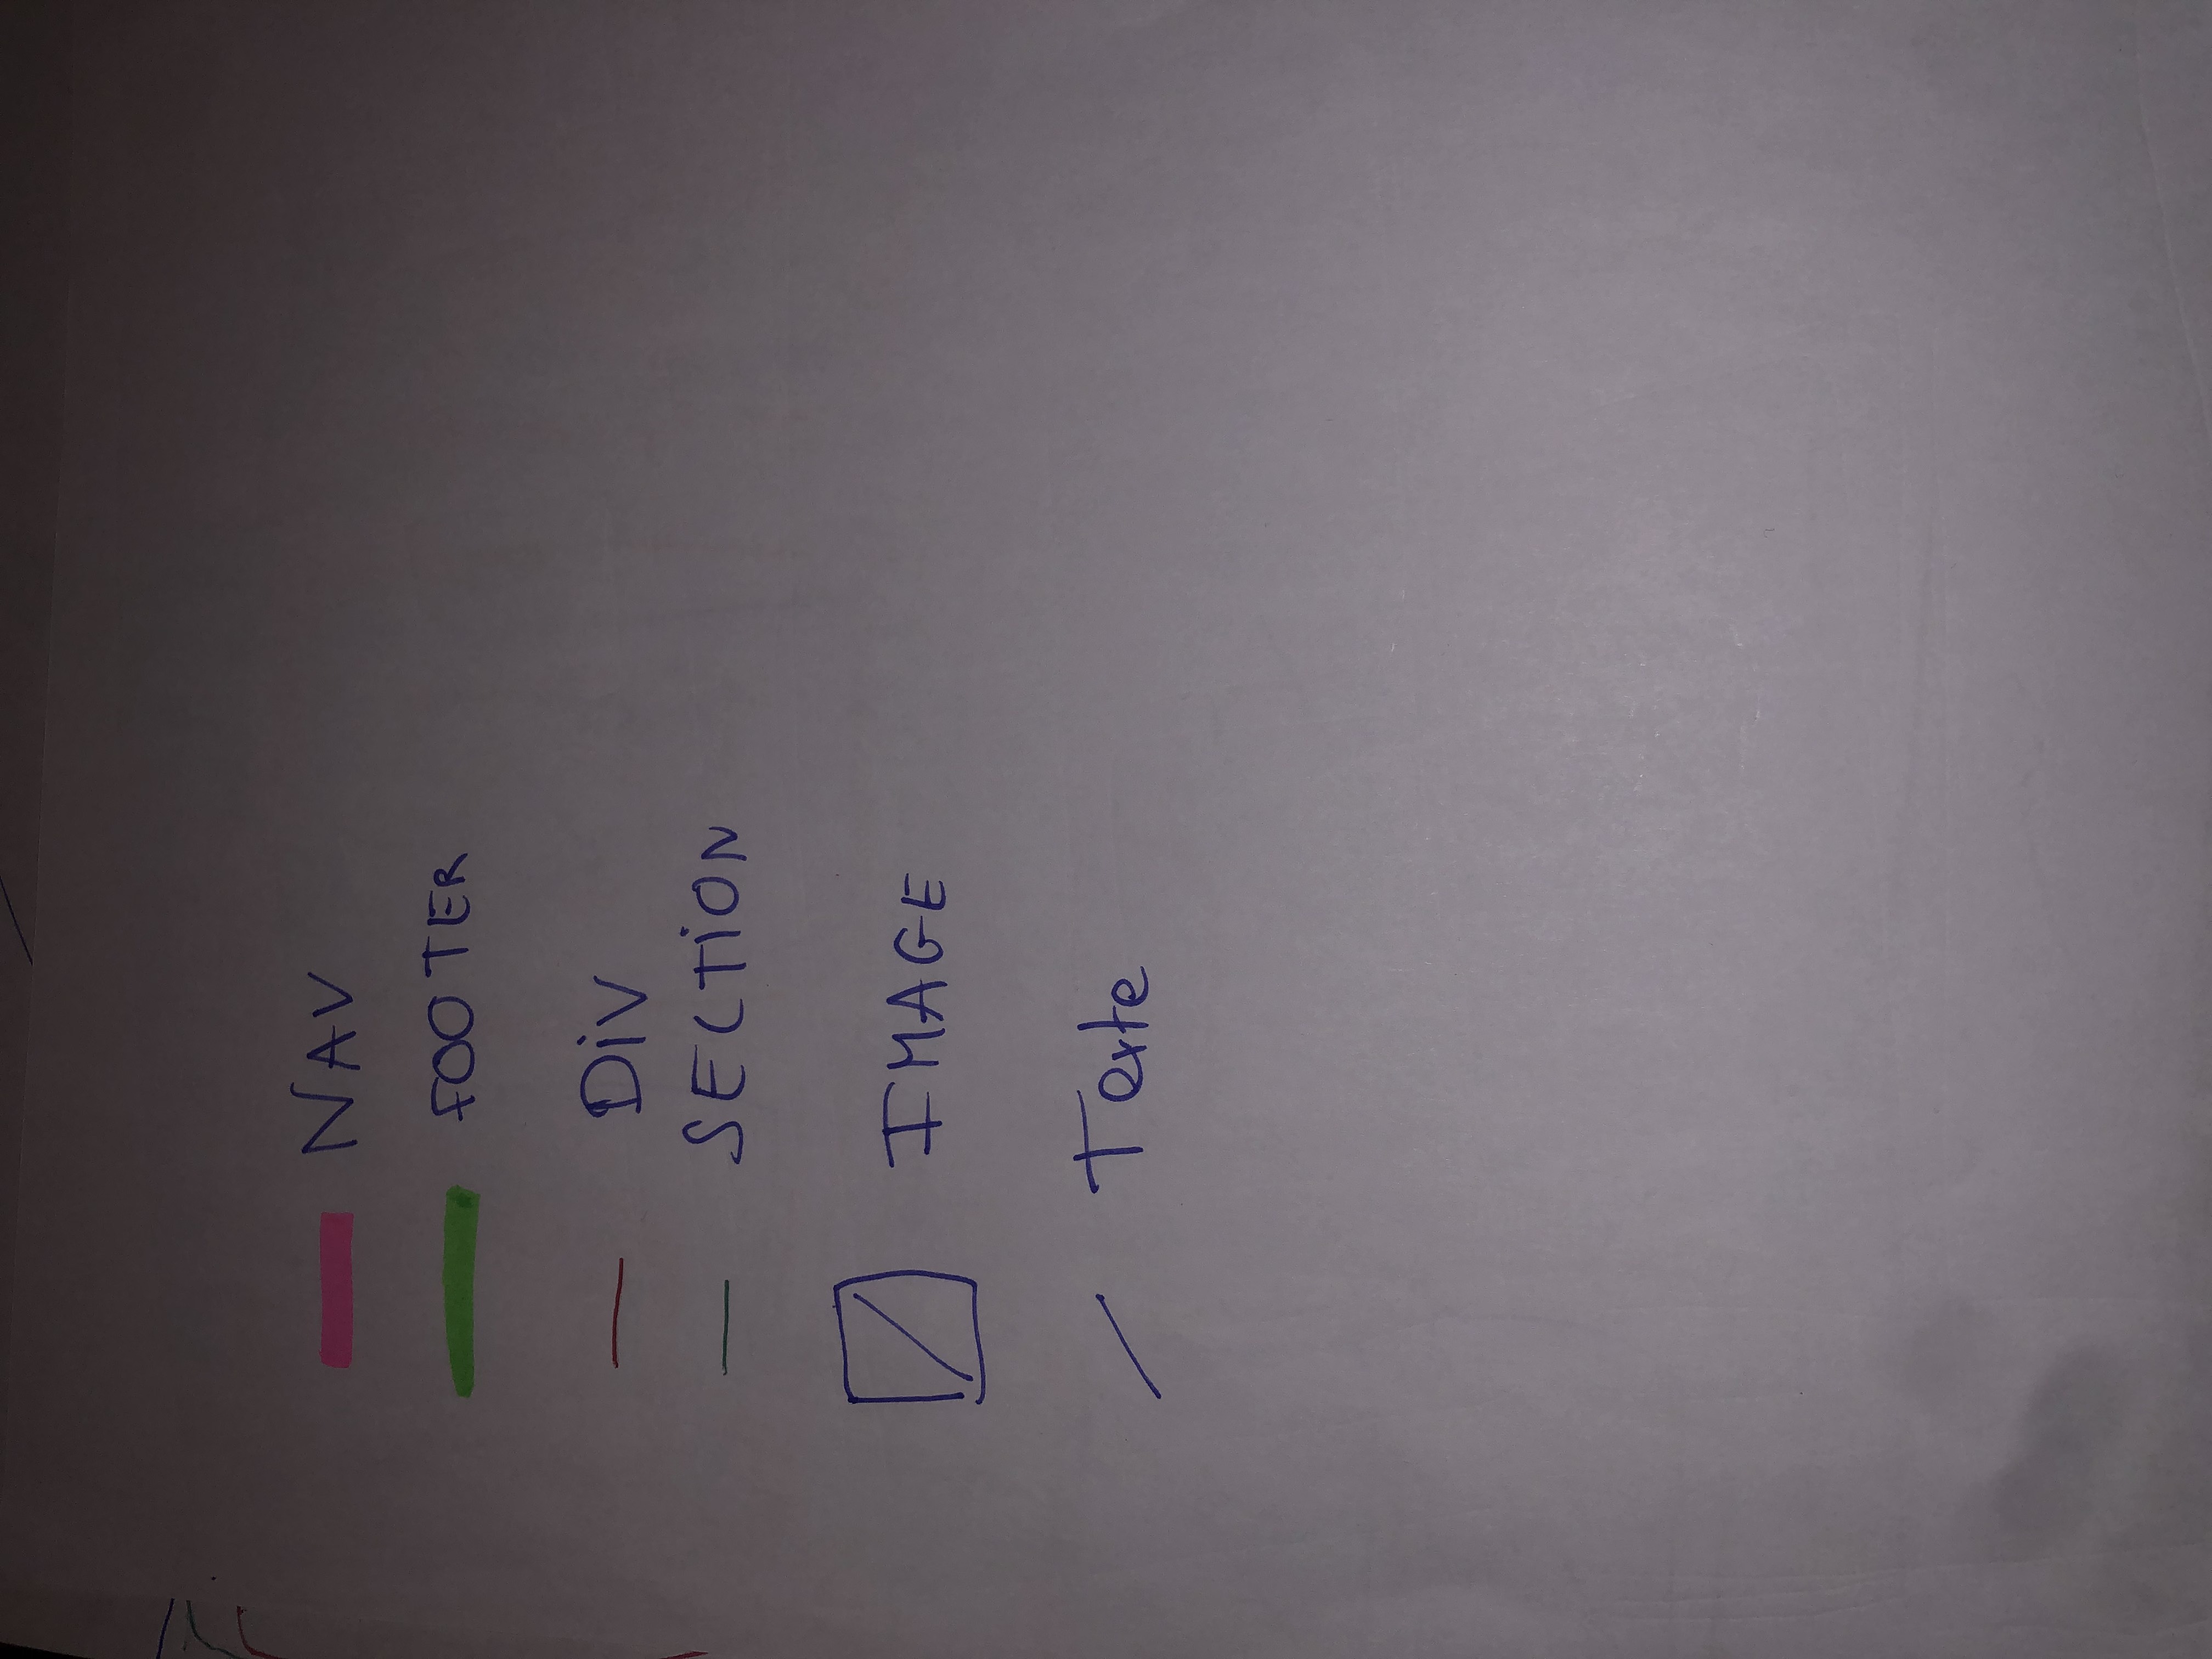 NAV
FOOTER
DiV
SECTiON
IMAGE
Texte